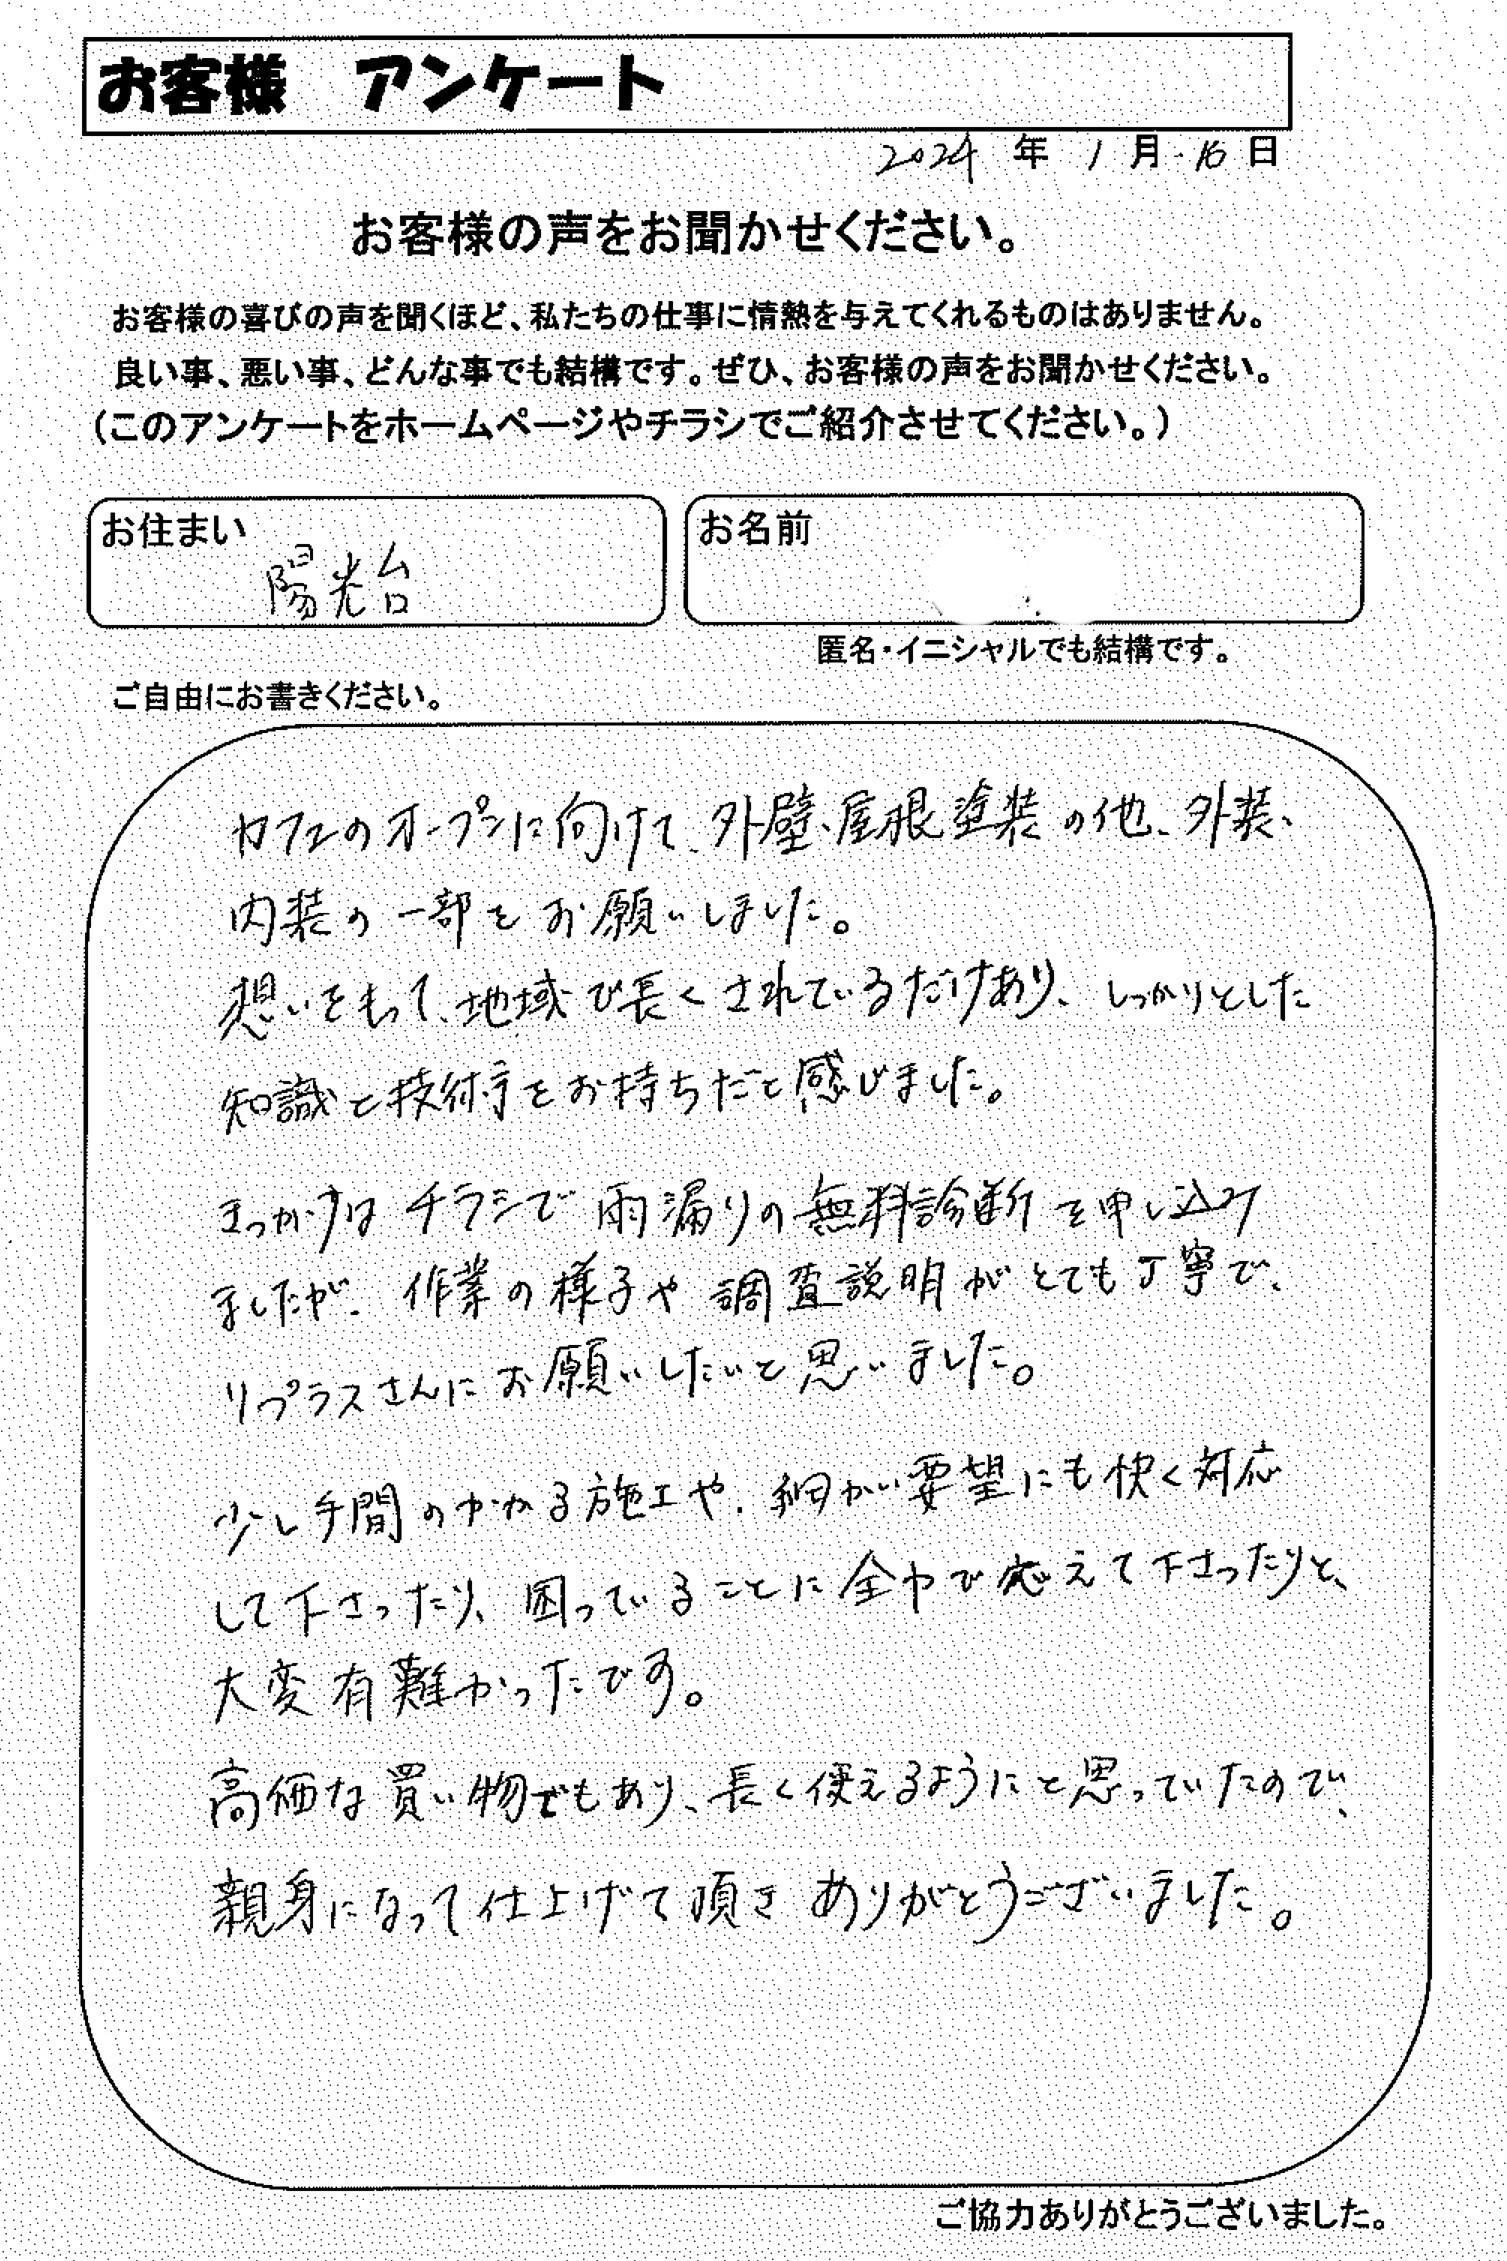 お客様　アンケート
2024 年 1 月 16 日
お客様の声をお聞かせください。
お客様の喜びの声を聞くほど、私たちの仕事に情熱を与えてくれるものはありません。
良い事、悪い事、どんな事でも結構です。ぜひ、お客様の声をお聞かせください。
（このアンケートをホームページやチラシでご紹介させてください。）
お住まい
陽光台
お名前
匿名・イニシャルでも結構です。
ご自由にお書きください。
カフェのオープンに向けて、外壁、屋根塗装の他、外装、
内装の一部をお願いしました。
想いをもって、地域で長くされているだけあり、しっかりとした
知識と技術等をお持ちだと感じました。
きっかけはチラシで雨漏りの無料診断を申し込み
ましたが、作業の様子や調査説明がとても丁寧で、
リプラスさんにお願いしたいと思いました。
少し手間のかかる施工や、細かい要望にも快く対応
して下さったり、困っていることに全力で応えて下さったりと、
大変有難かったです。
高価な買い物でもあり、長く使えるようにと思っていたので、
親身になって仕上げて頂きありがとうございました。
ご協力ありがとうございました。